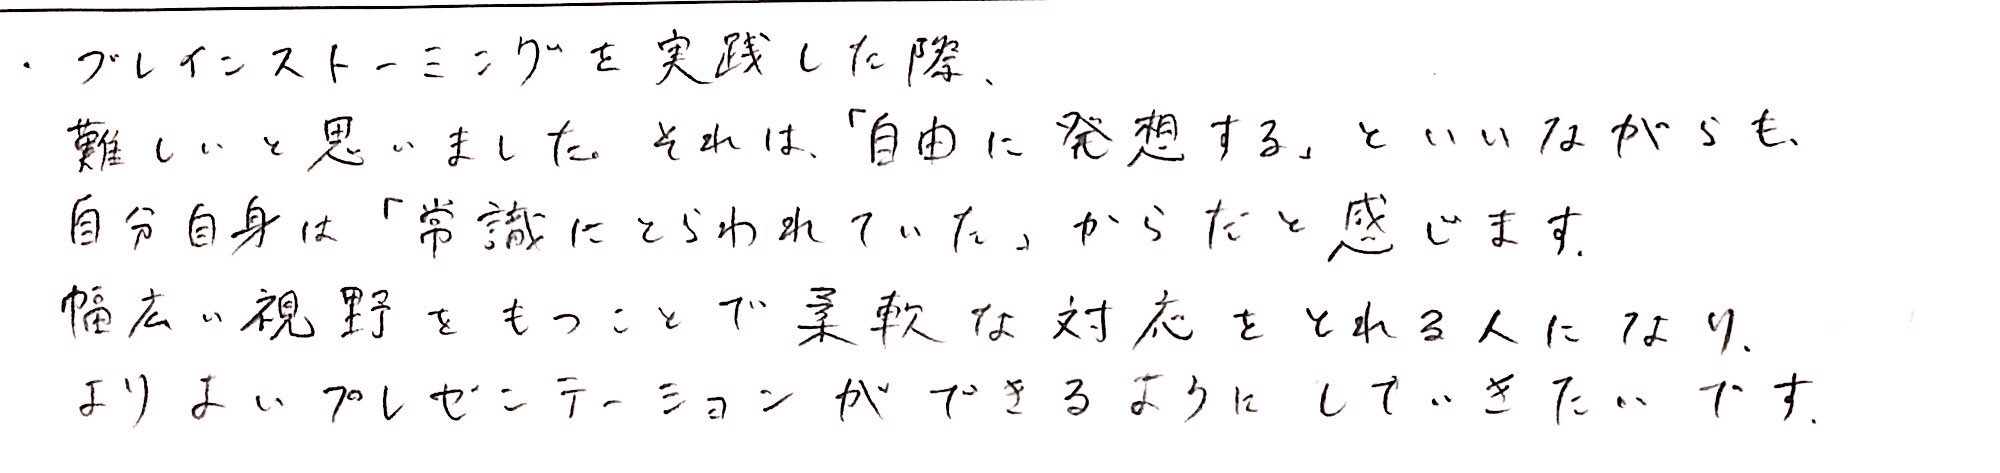 ・ブレインストーミングを実践した際、
難しいと思いました。それは、「自由に発想する」といいながらも、
自分自身は「常識にとらわれていた」からだと感じます。
幅広い視野をもつことで柔軟な対応をとれる人になり、
よりよいプレゼンテーションができるようにしていきたいです。